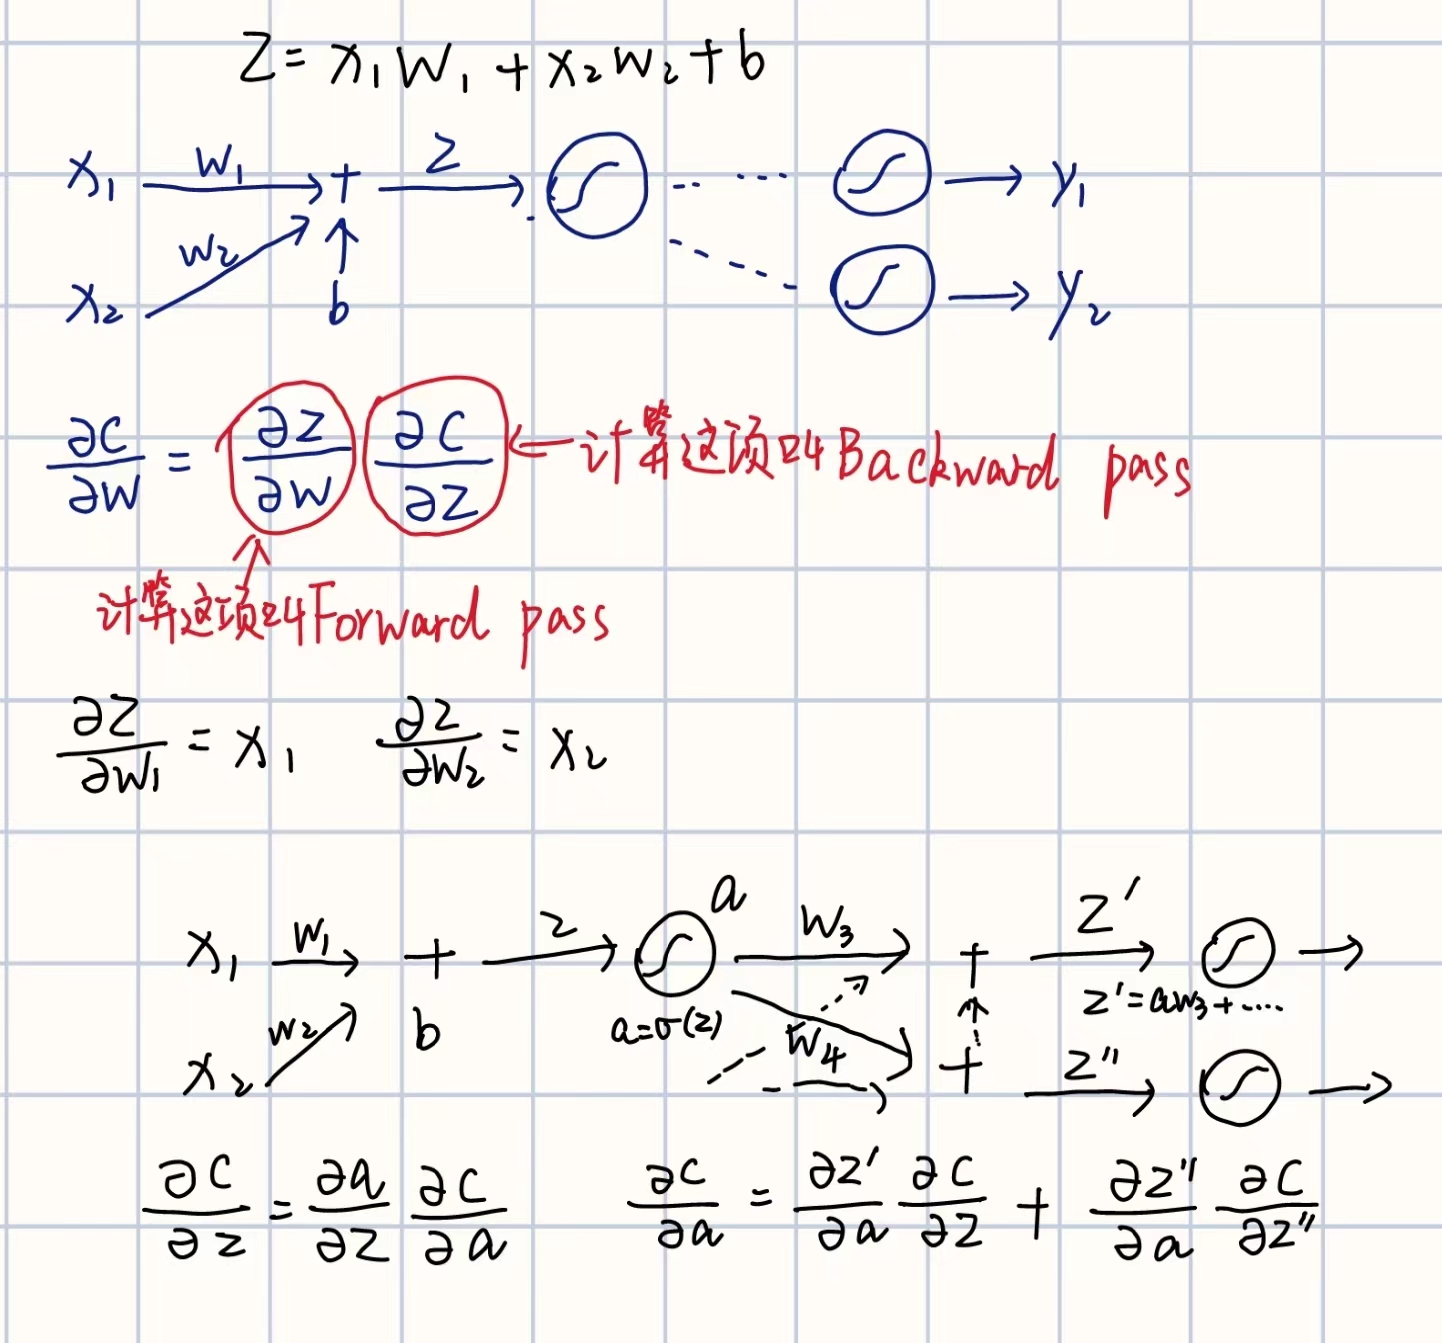 Z = x₁W₁ + x₂W₂ + b
x₁ W₁ + Z y₁
x₂ W₂ b y₂
∂C/∂W = ∂Z/∂W ∂C/∂Z ← 计算这项叫Backward pass
计算这项叫Forward pass
∂Z/∂W₁ = x₁ ∂Z/∂W₂ = x₂
a
x₁ W₁ + Z W₃ + Z′
a=σ(Z) Z′=aW₃+....
x₂ W₂ b W₄ + Z″
∂C/∂Z = ∂a/∂Z ∂C/∂a ∂C/∂a = ∂Z′/∂a ∂C/∂Z + ∂Z″/∂a ∂C/∂Z″